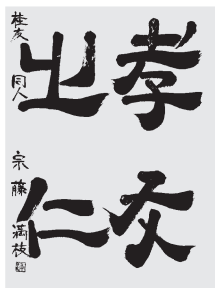 孝友
之仁
桂友 同人 宗藤 満枝